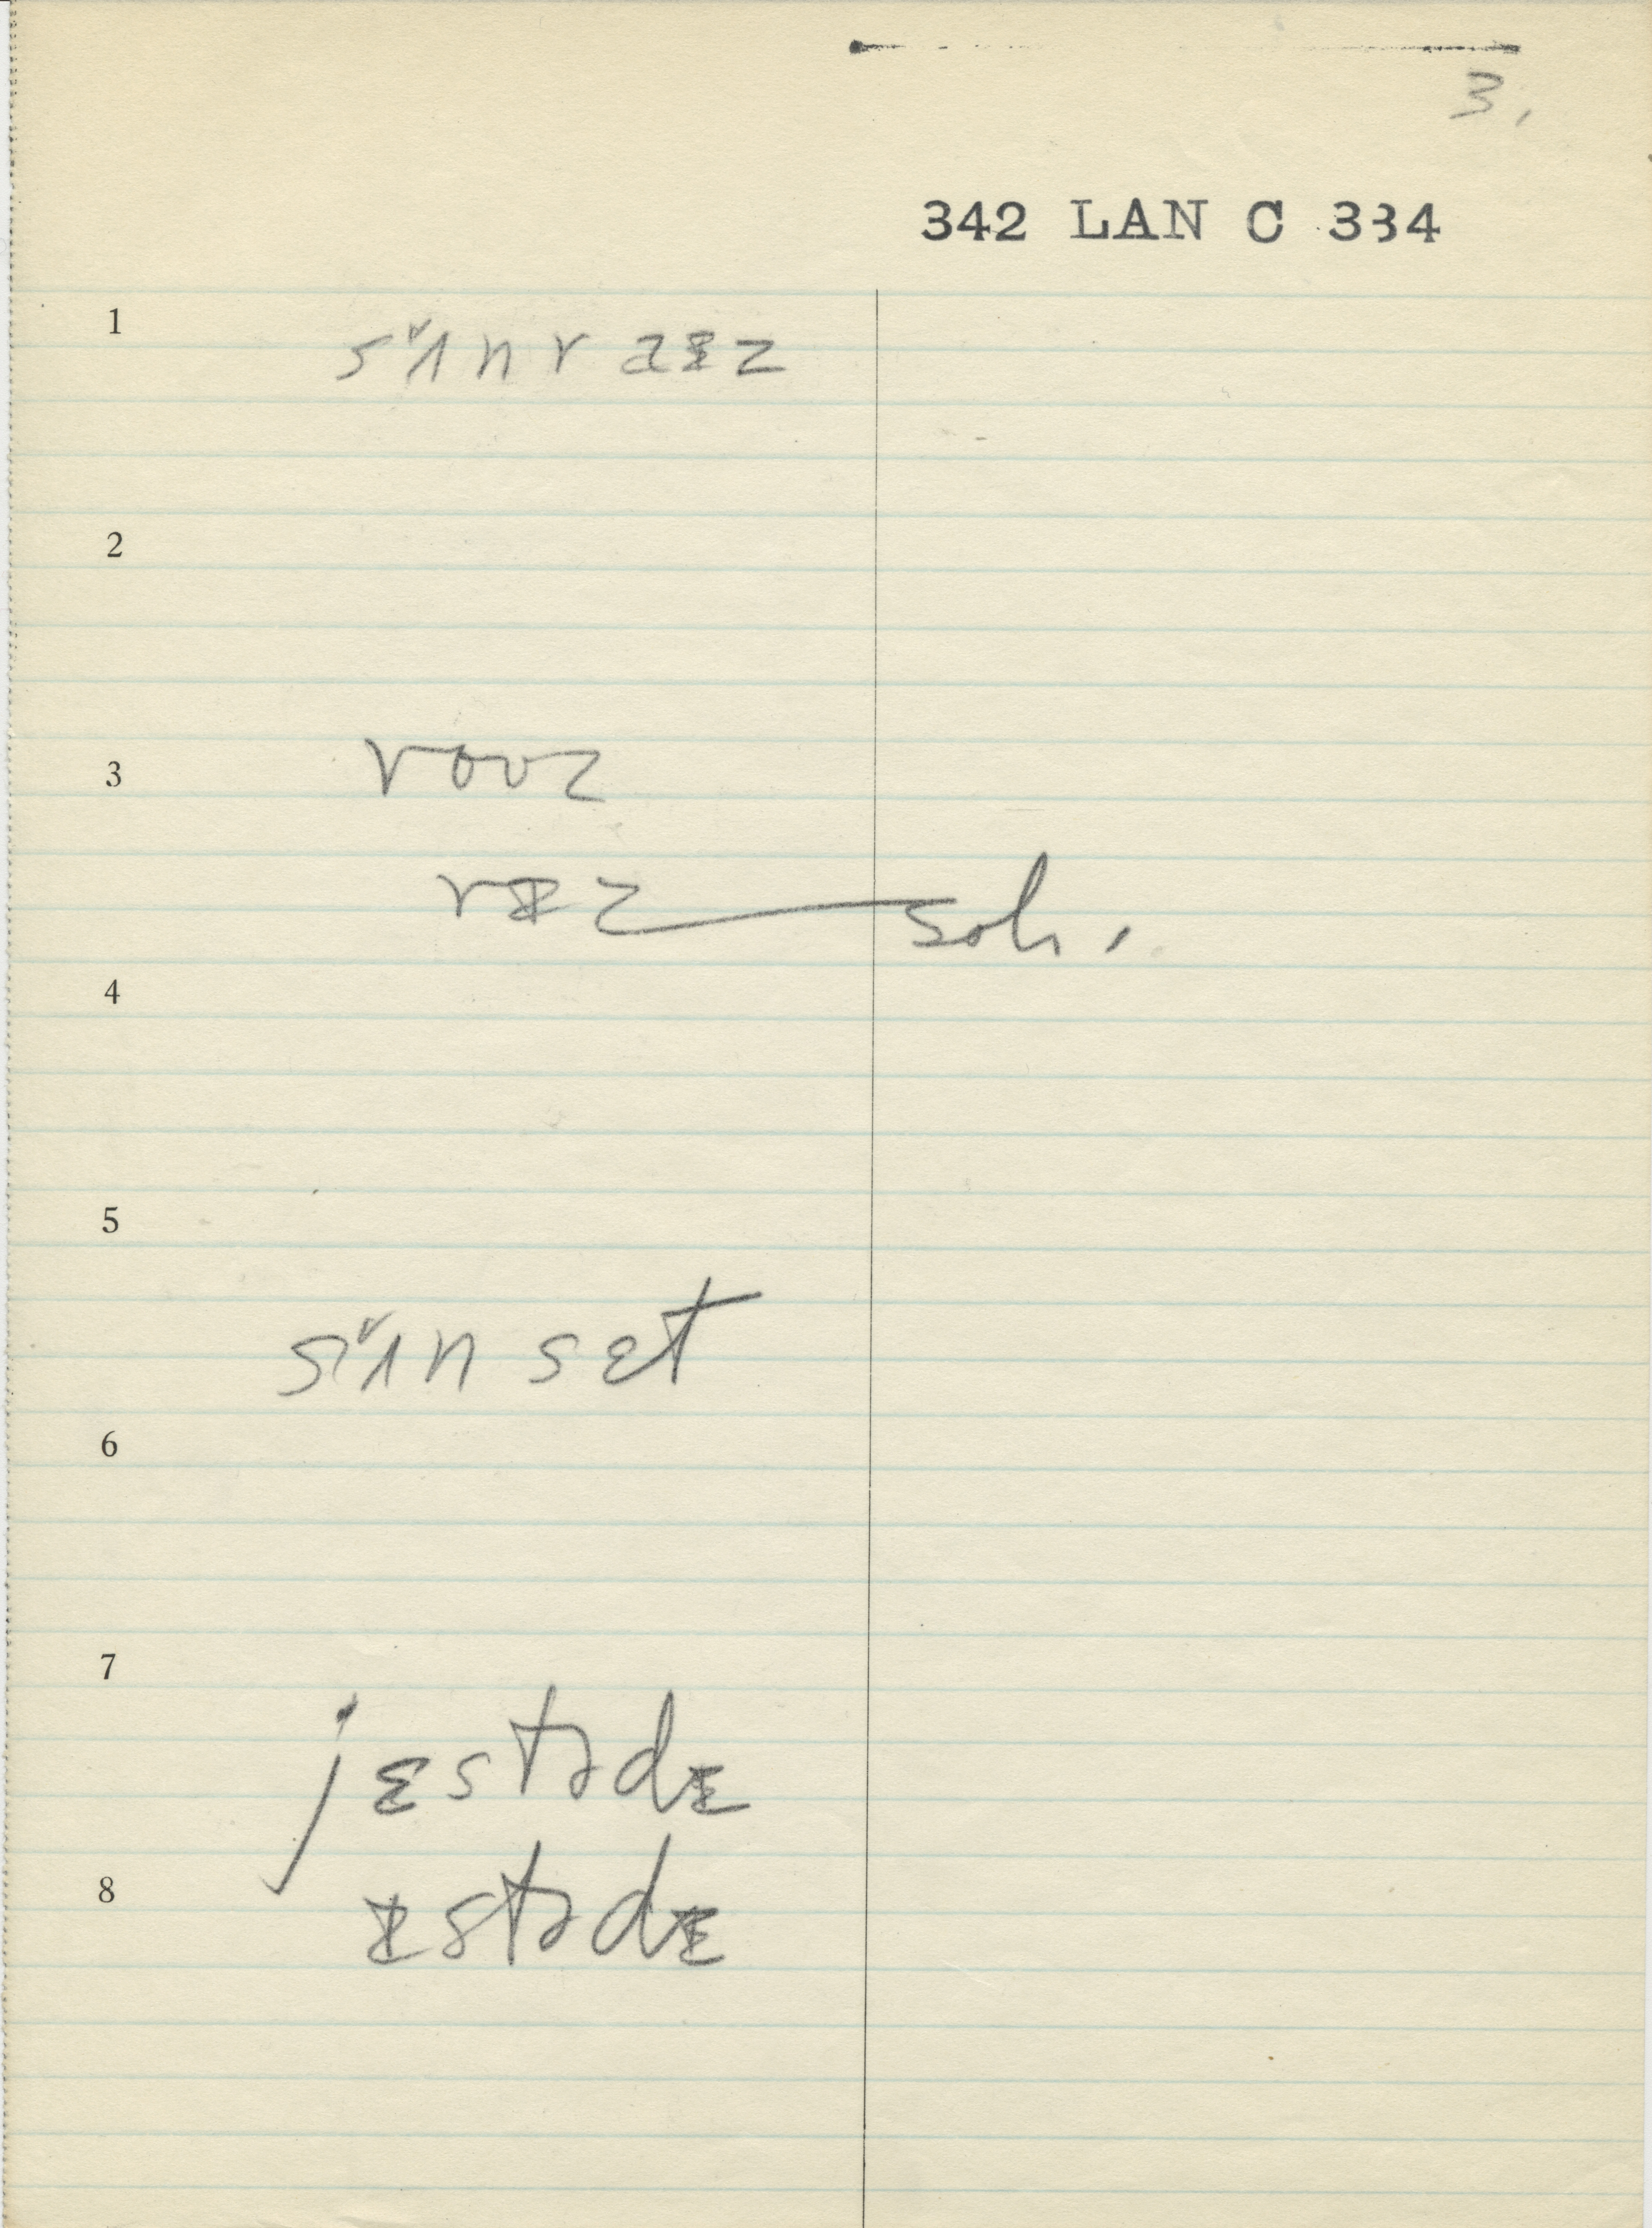 3.
342 LAN C 334
1 sʌ̌nraɪz
2
3 roʊz
rɪz soh.
4
5
sʌ̌nsɛt
6
7
jɛstɚdɪ
8 ɪstɚdɪ